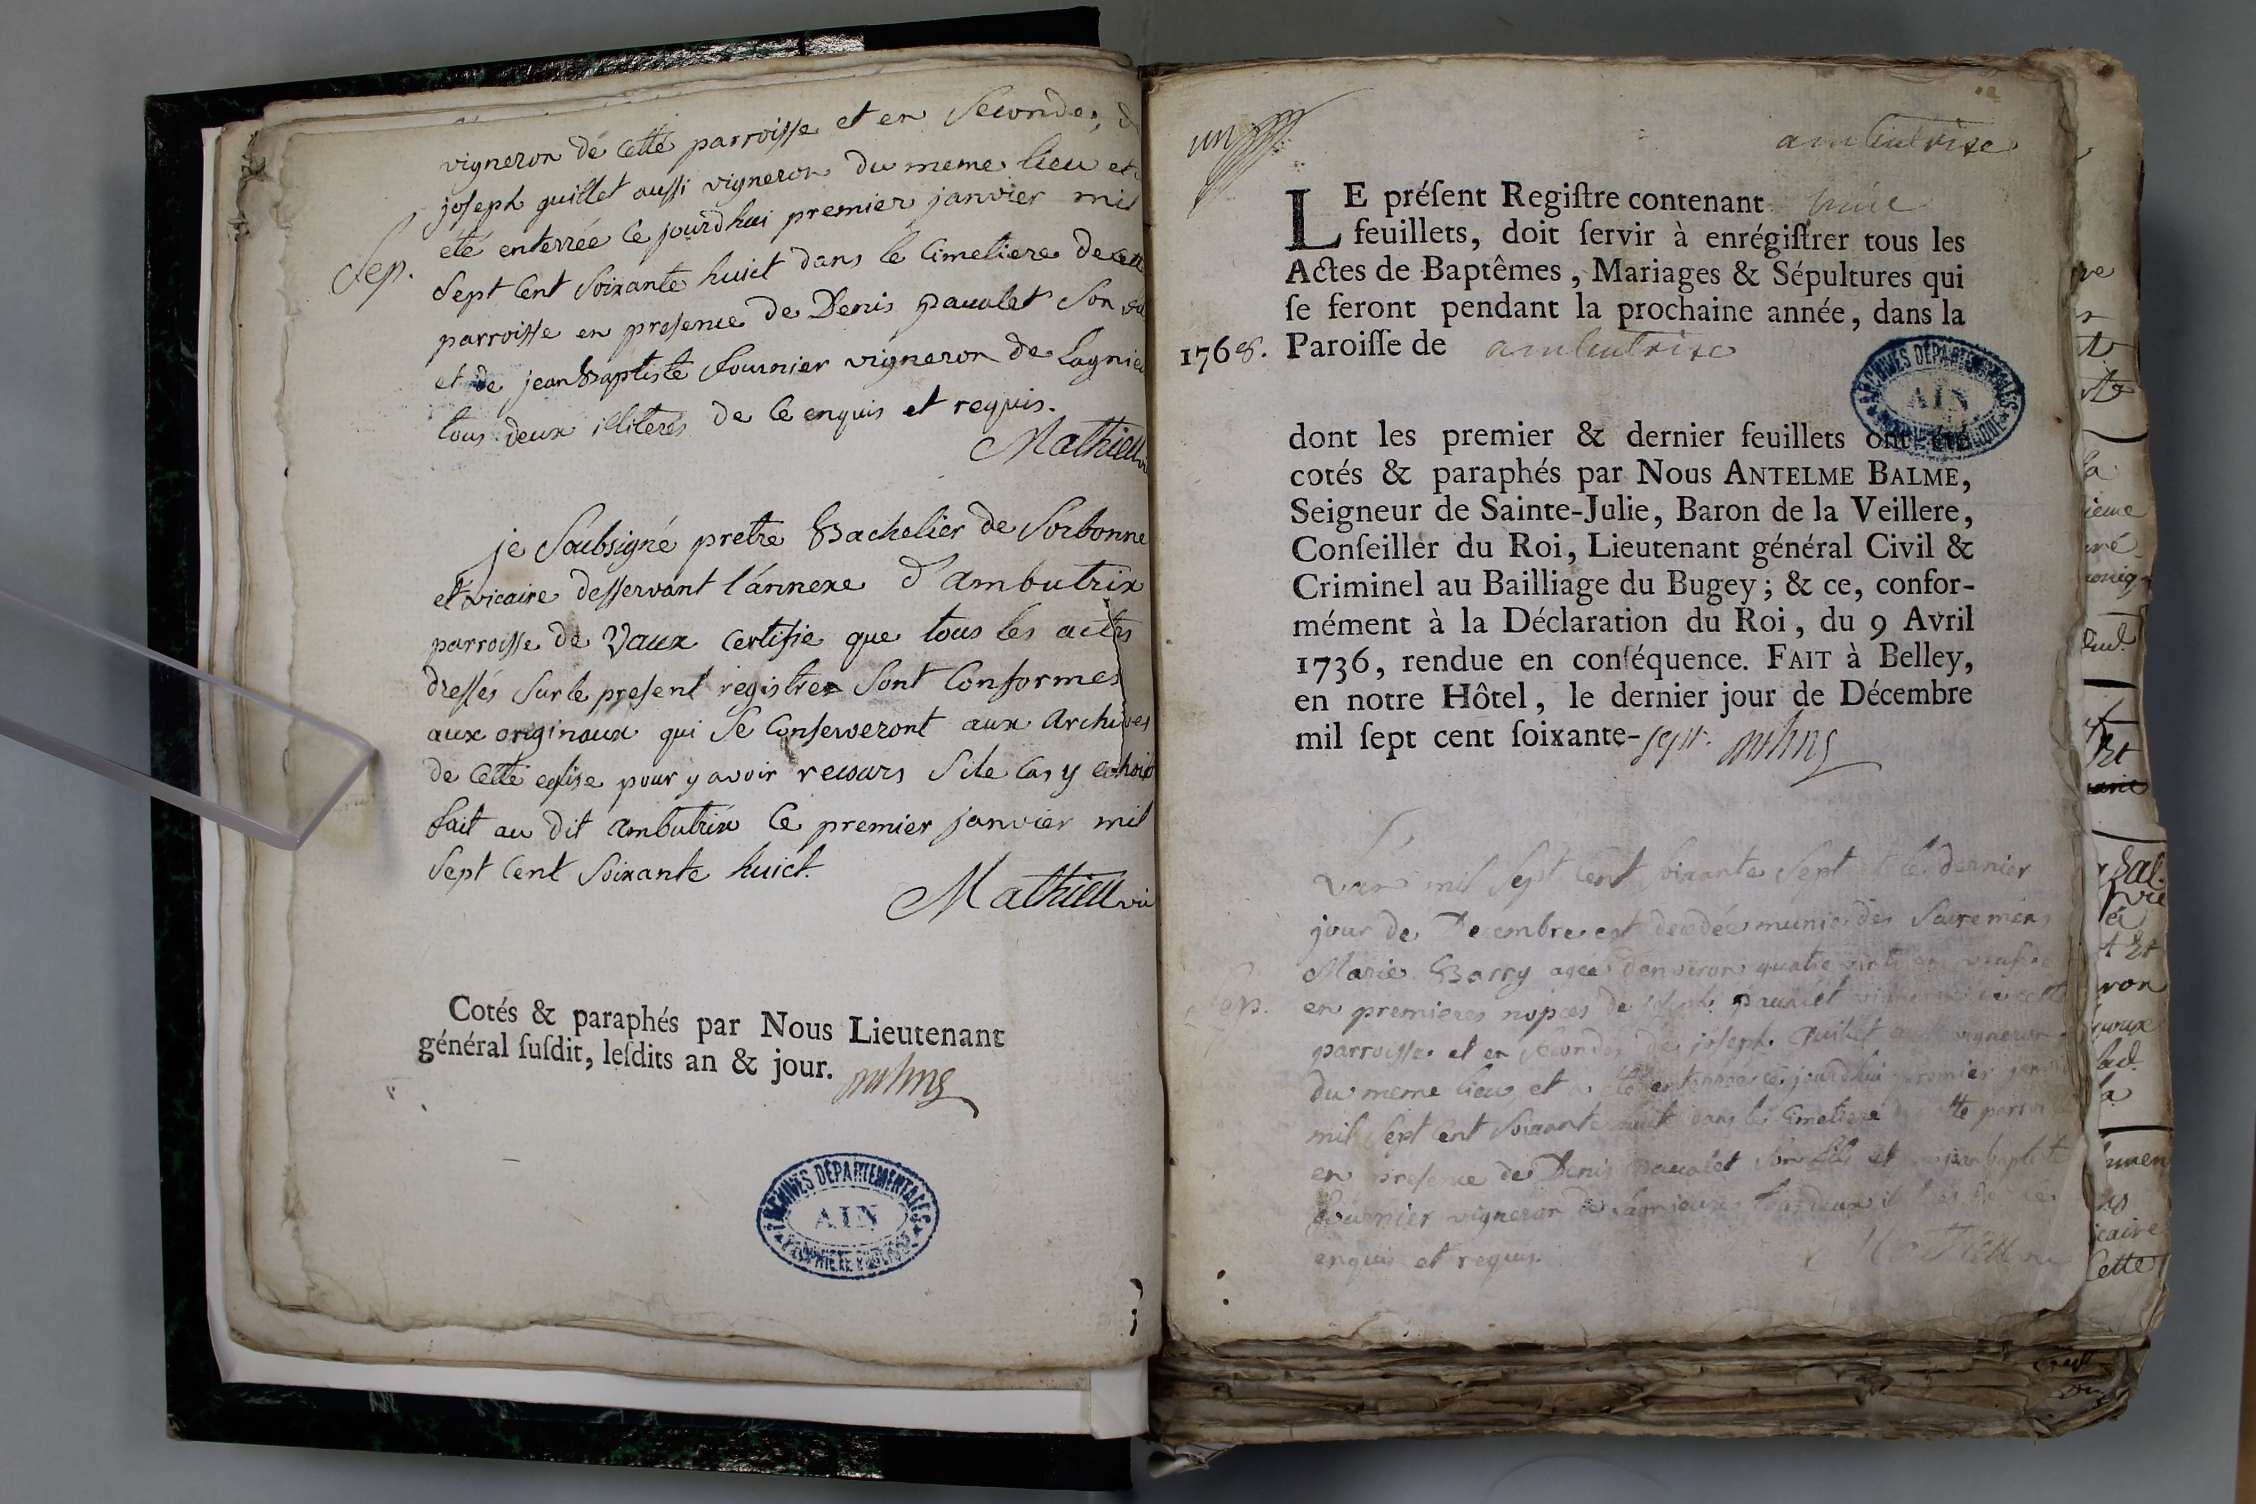 vigneron de cette parroisse et en Secondes, d
joseph quillet aussi vigneron du meme lieu et
eté enterrée ce jourdhui premier janvier mil
Sep.
Sept Cent Soixante huict dans le Cimetiere de cette
parroisse en presence de Denis pavalet Son
et de jean Baptiste fournier vigneron de Lagnieu
tous deux illiteres de ce enquis et requis.
Mathieu
je Soubsigné pretre Bachelier de Sorbonne
et vicaire desservant l'annexe d'ambutrix
parroisse de Vaux certifie que tous les actes
dressés Sur le present registre Sont Conformes
aux originaux qui Se Conserveront aux archives
de Cette eglise pour y avoir recours Si le Cas y echoit
fait au dit ambutrix Ce premier janvier mil
Sept Cent Soixante huict.
Mathieu vic
Cotés & paraphés par Nous Lieutenant
général ſuſdit, leſdits an & jour.
ARCHIVES DÉPARTEMENTALES
AIN
un
ambutrix
LE préſent Regiſtre contenant
feuillets, doit ſervir à enrégiſtrer tous les
Actes de Baptêmes, Mariages & Sépultures qui
ſe feront pendant la prochaine année, dans la
1768. Paroiſſe de ambutrix
ARCHIVES DÉPARTEMENTALES
AIN
dont les premier & dernier feuillets ont été
cotés & paraphés par Nous ANTELME BALME,
Seigneur de Sainte-Julie, Baron de la Veillere,
Conſeiller du Roi, Lieutenant général Civil &
Criminel au Bailliage du Bugey; & ce, confor-
mément à la Déclaration du Roi, du 9 Avril
1736, rendue en conſéquence. FAIT à Belley,
en notre Hôtel, le dernier jour de Décembre
mil ſept cent ſoixante-sept.
L'an mil Sept Cent Soixante Sept et le dernier
jour de Decembre est decedée munie des Sacremens
Marie Barry agée d'environ quatre vint
Sep.
en premieres nopces de vigneron de cette
parroisse et en secondes de joseph quillet aussi vigneron
du meme lieu et a été enterrée ce jourdhui premier janvier
mil Sept Cent Soixante huict dans le Cimetiere de cette parroisse
en presence de Denis pavalet Son fils et jean baptiste
fournier vigneron de Lagnieu tous deux de ce
enquis et requis.
Mathieu vic